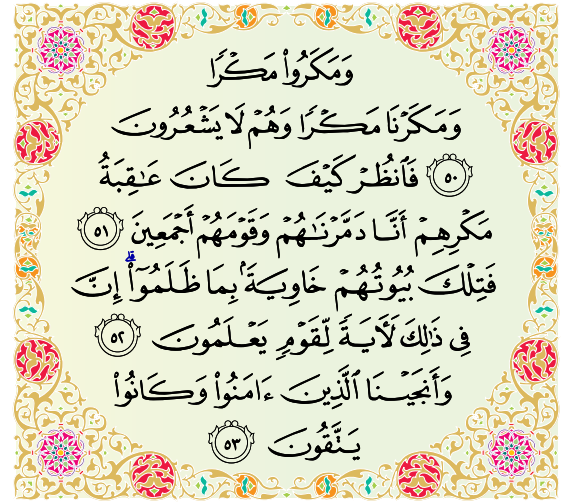 وَمَكَرُوا۟ مَكْرًا
وَمَكَرْنَا مَكْرًا وَهُمْ لَا يَشْعُرُونَ
۝٥٠ فَٱنظُرْ كَيْفَ كَانَ عَـٰقِبَةُ
مَكْرِهِمْ أَنَّا دَمَّرْنَـٰهُمْ وَقَوْمَهُمْ أَجْمَعِينَ ۝٥١
فَتِلْكَ بُيُوتُهُمْ خَاوِيَةًۢ بِمَا ظَلَمُوٓا۟ ۗ إِنَّ
فِى ذَٰلِكَ لَـَٔايَةً لِّقَوْمٍ يَعْلَمُونَ ۝٥٢
وَأَنجَيْنَا ٱلَّذِينَ ءَامَنُوا۟ وَكَانُوا۟
يَتَّقُونَ ۝٥٣